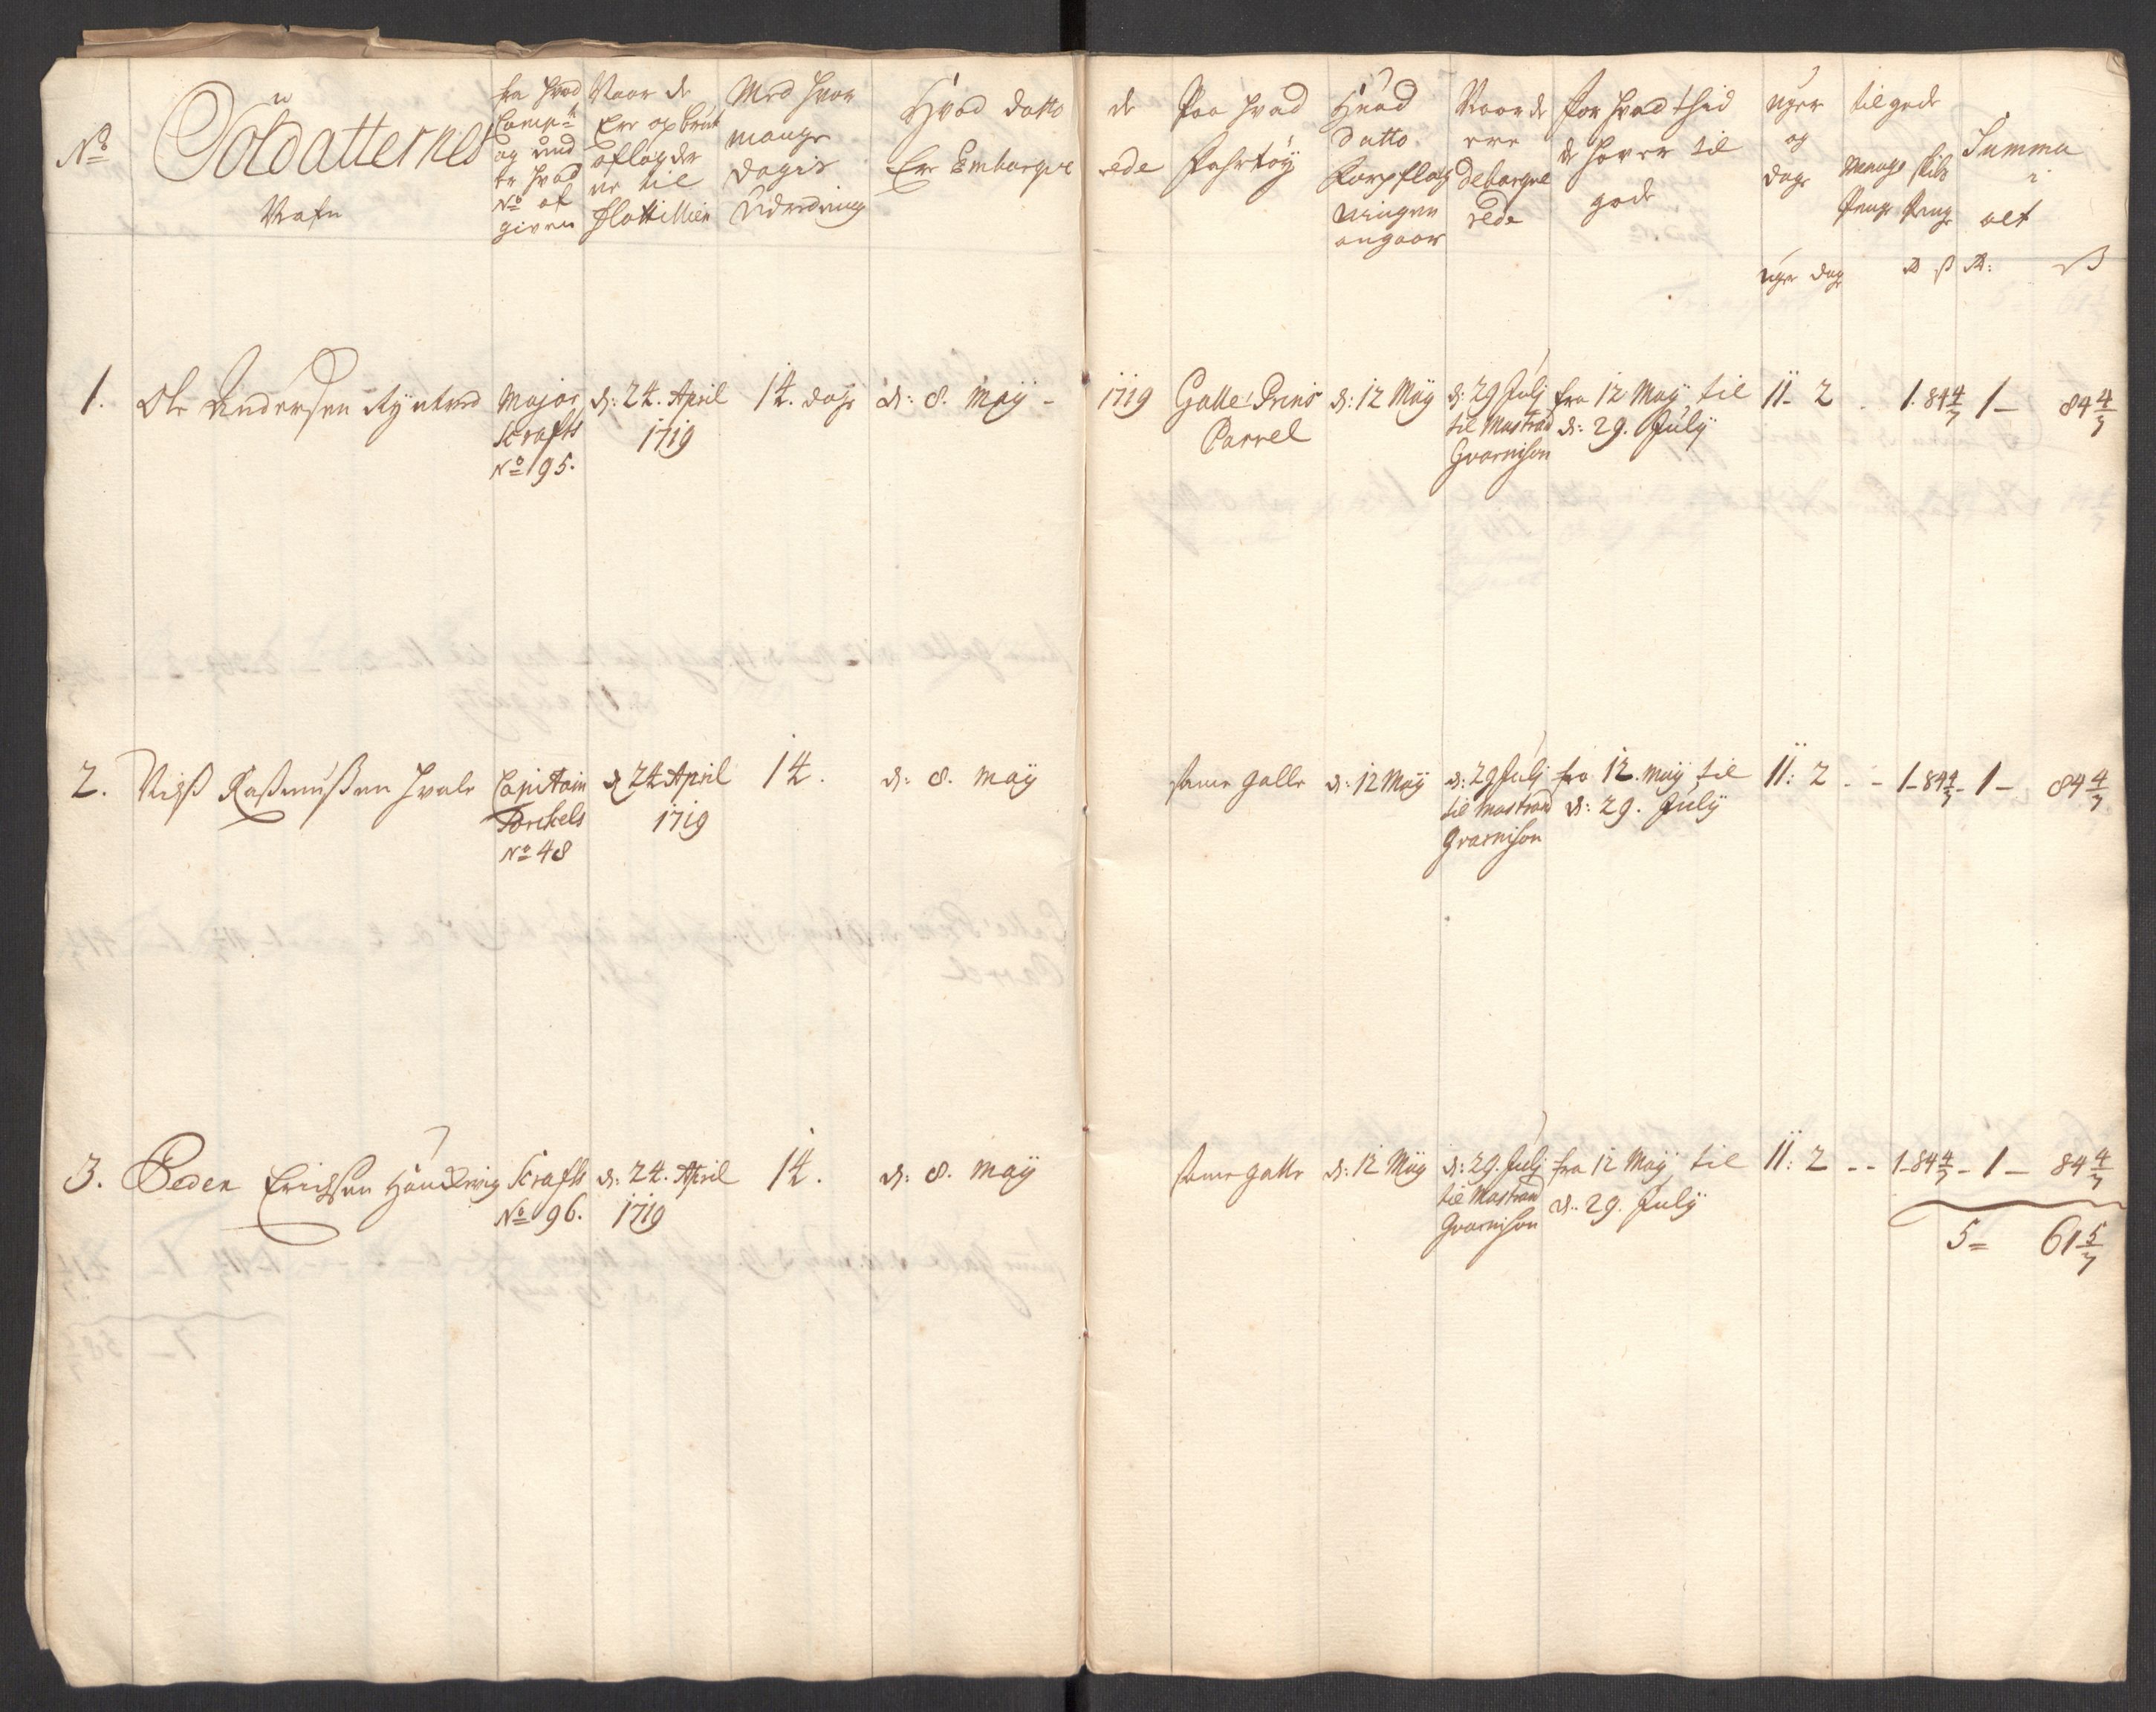 No
Soldatternes
Nafn
fra hvad
Comp:
og und
er hvad
No af
given
Naar de
Ere opbrut
aflagde
ne til
Flottillien
Med hvor
mange
Dagis
Hvad datto
Ere Embarque
de
rede
Paa hvad
Fahrtøÿ
Hvad
datto
Forpfleg
ningen
angaar
Naar de
ere
debarqve
rede
for hvad thid
de hafver til
gode
uger
og
dage
til gode
Penge
Summa
i
alt
uger dage
1.
Ole Andersen
Major
No 95.
d: 24. April
1719
14. dage
d: 8. maÿ -
1719
Galle: Prins
Carrel
d: 12 Maÿ
d: 29 Julÿ
til Mastrand
Gvarnison
fra 12 Maÿ til
d: 29. Julÿ
11- 2
1. 84 4/7
1 - 84 4/7
2.
Nielß Raßmußen
Capitain
No 48
d 24 April
1719
14.
d: 8. maÿ
same galle
d: 12 Maÿ
d: 29 Julÿ
til Mastrand
Gvarnison
fra 12. maÿ til
d: 29. Julÿ
11: 2 - -
1 - 84 4/7 -
1 - 84 4/7
3.
Peder Erichsen
No 96.
d: 24. April
1719
14.
d: 8. maÿ
same galle
d: 12 Maÿ
d: 29. Julÿ
til Mastrand
Gvarnison
fra 12 Maÿ til
d: 29. Julÿ
11: 2 - -
1 - 84 4/7 -
1 - 84 4/7
5 = 61 5/7